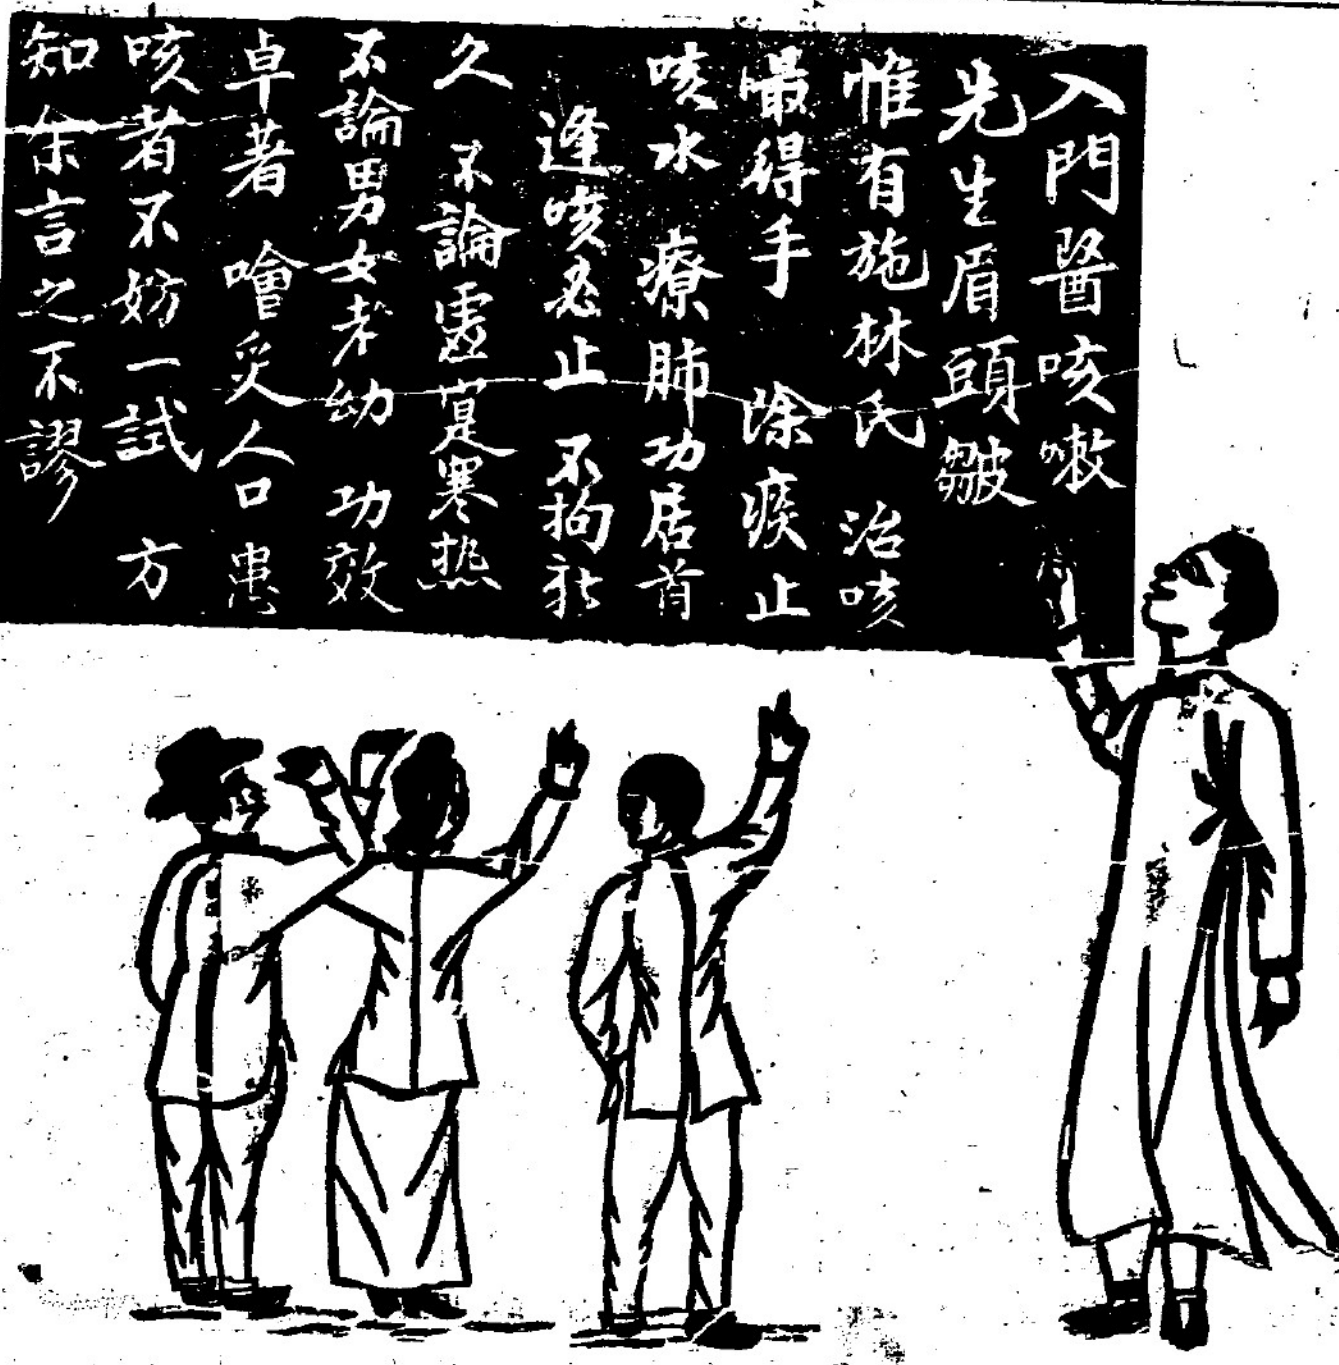 入門醫咳嗽
先生眉頭皺
惟有施林氏　治咳
嘬得手　除痰止
咳水　療肺功居首
逢咳必止　不拘新
久　不論虛寔寒热
不論男女老幼　功效
卓著　噲炙人口　患
咳者不妨一試　方
知余言之不謬